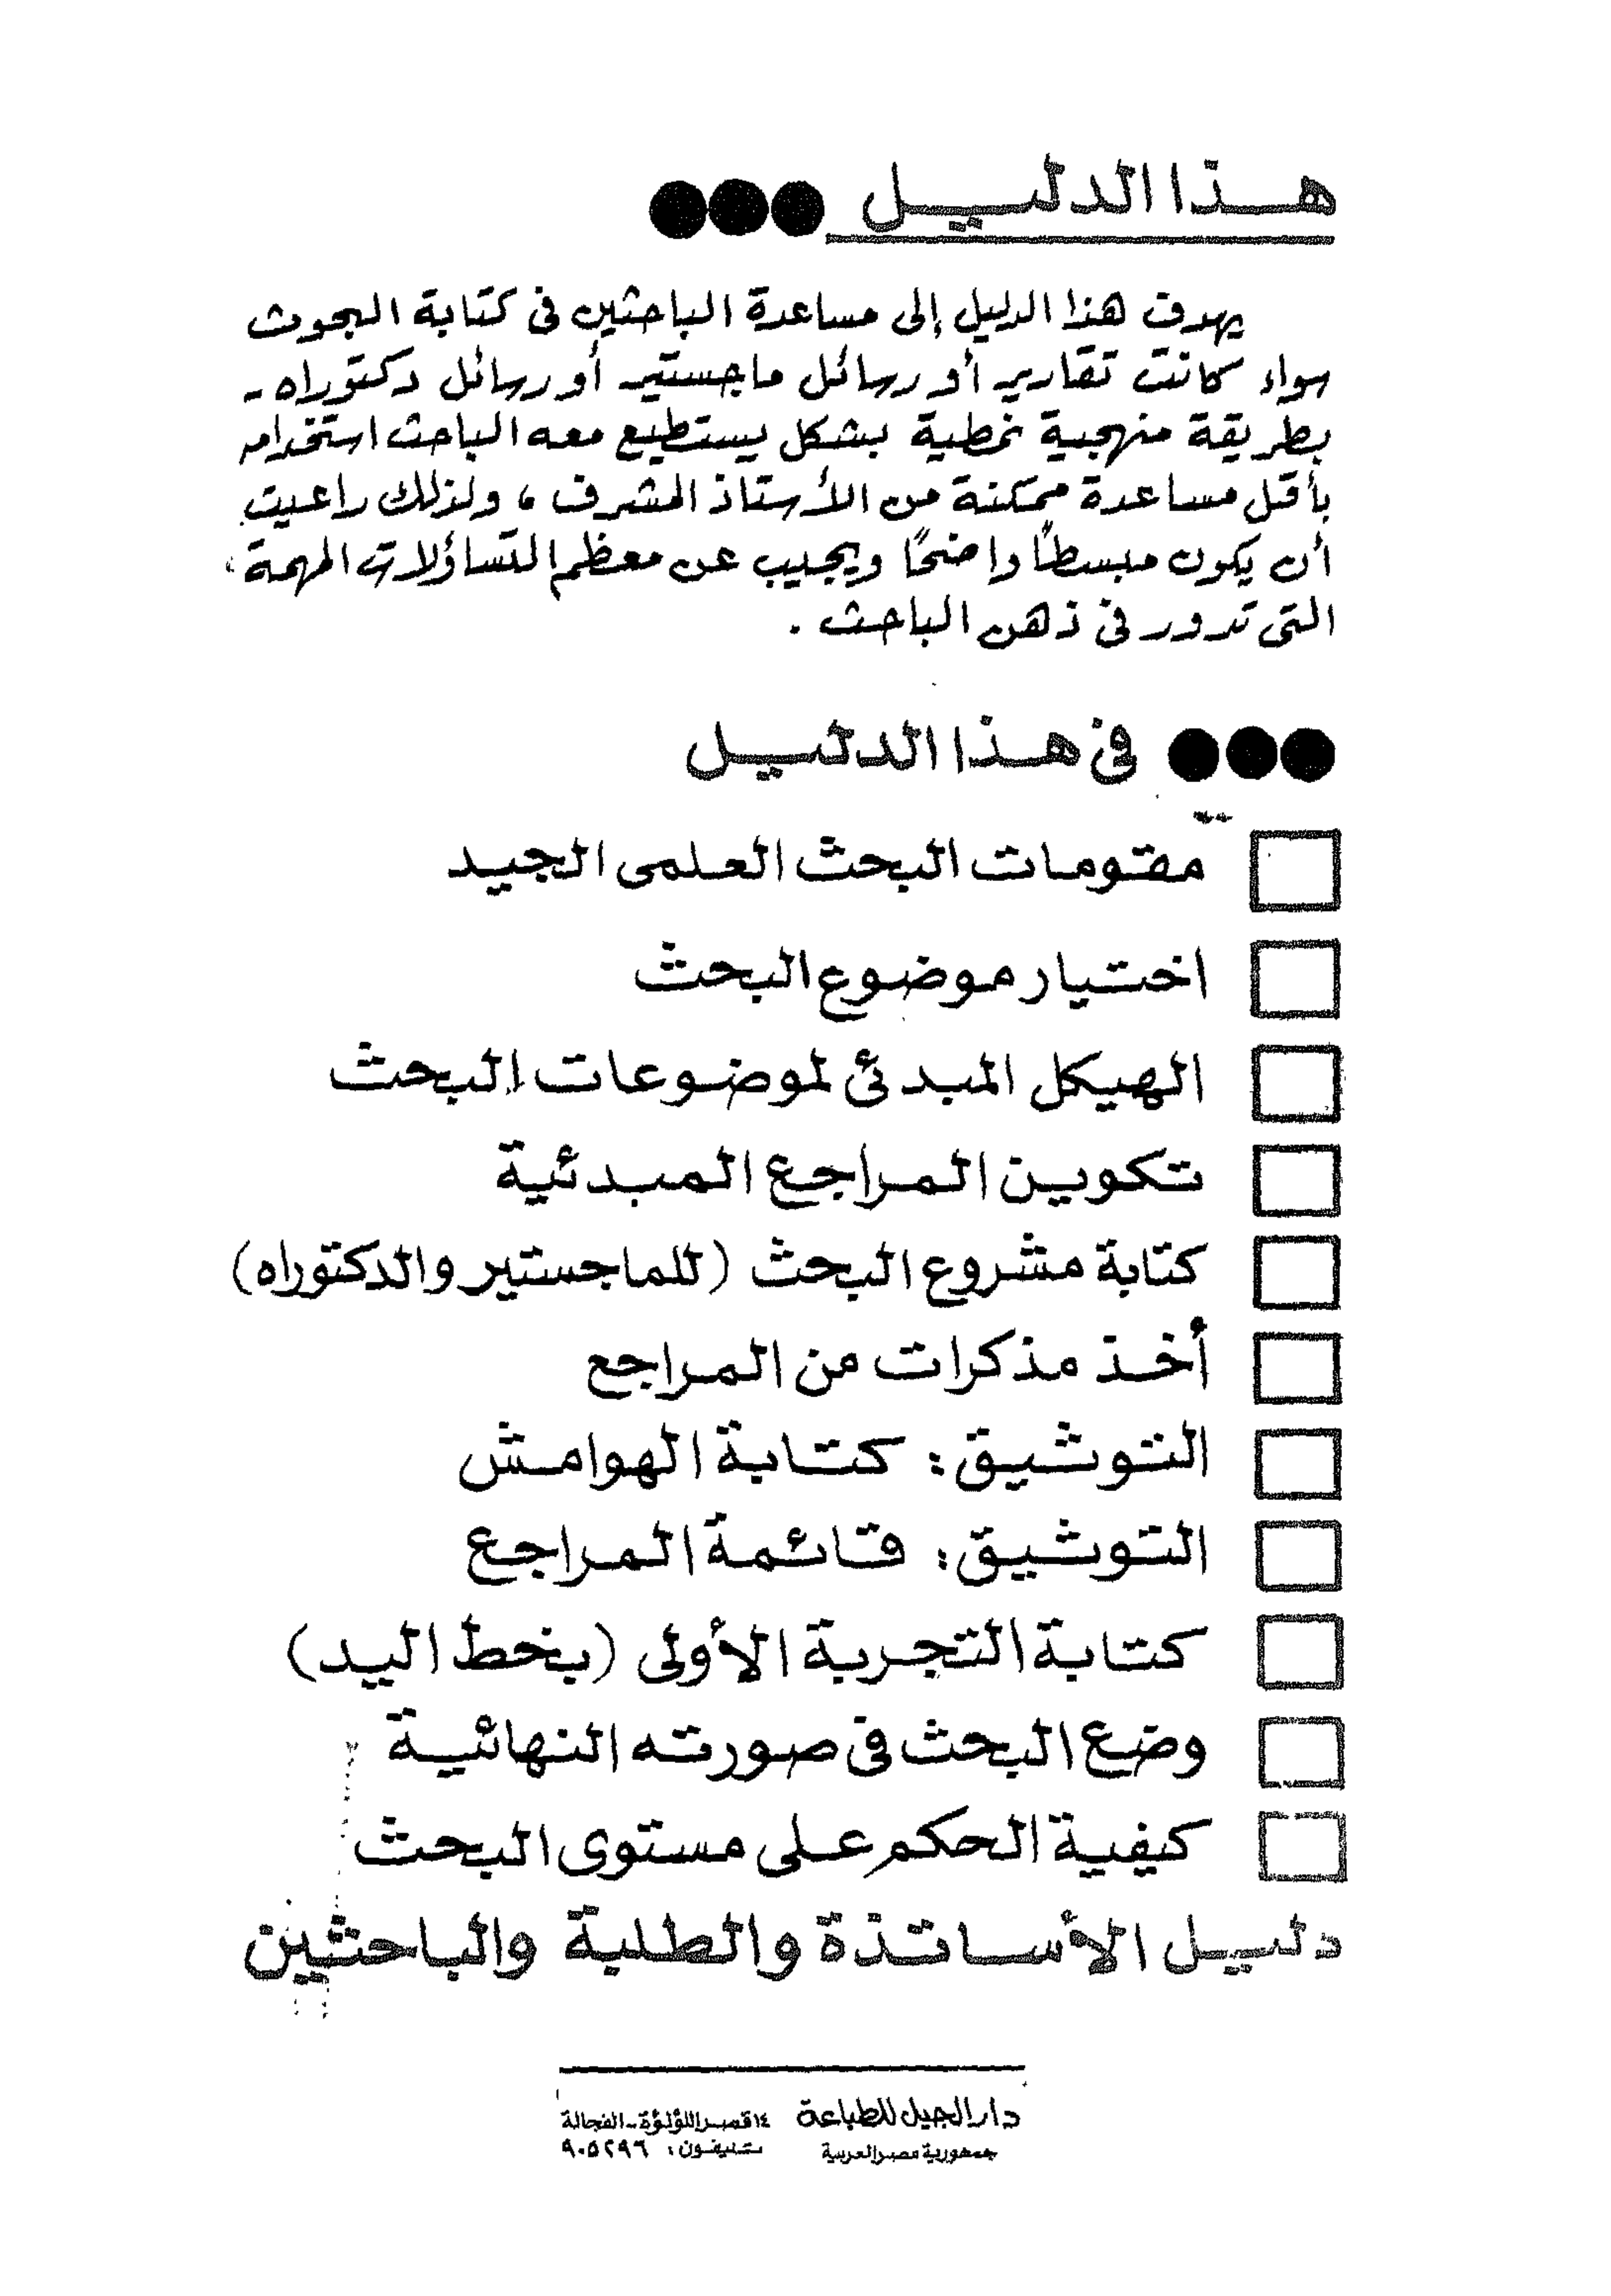 هذا الدليل
يهدف هذا الدليل إلى مساعدة الباحثين فى كتابة البحوث
سواء كانت تقارير أو رسائل ماجستير أو رسائل دكتوراه -
بطريقة منهجية نمطية بشكل يستطيع معه الباحث استخدامه
بأقل مساعدة ممكنة من الأستاذ المشرف ، ولذلك راعيت
أن يكون مبسطًا واضحًا ويجيب عن معظم التساؤلات المهمة
التى تدور فى ذهن الباحث .
فى هذا الدليل
مقومات البحث العلمى الجيد
اختيار موضوع البحث
الهيكل المبدئى لموضوعات البحث
تكوين المراجع المبدئية
كتابة مشروع البحث (للماجستير والدكتوراه)
أخذ مذكرات من المراجع
التوثيق: كتابة الهوامش
التوثيق: قائمة المراجع
كتابة التجربة الأولى (بخط اليد)
وضع البحث فى صورته النهائية
كيفية الحكم على مستوى البحث
دليل الأساتذة والطلبة والباحثين
دار الجيل للطباعة ١٤ قصر اللؤلؤة - الفجالة
جمهورية مصر العربية تليفون: ٩٠٥٢٩٦